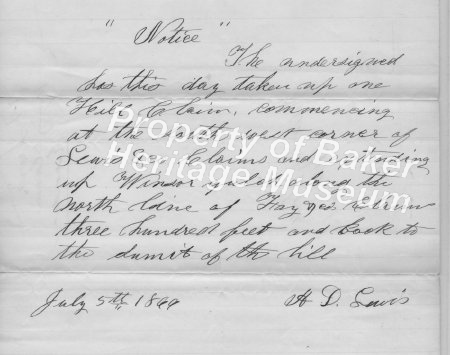 " Notice "
The undersigned
has this day taken up one
Hill Claim, commencing
at the south west corner of
Lewis Claims and extending
up Winsor gulch along the
north line of Claim
three hundred feet and back to
the sumit of the hill
July 5th H D. Lewis
Property of Baker
Heritage Museum